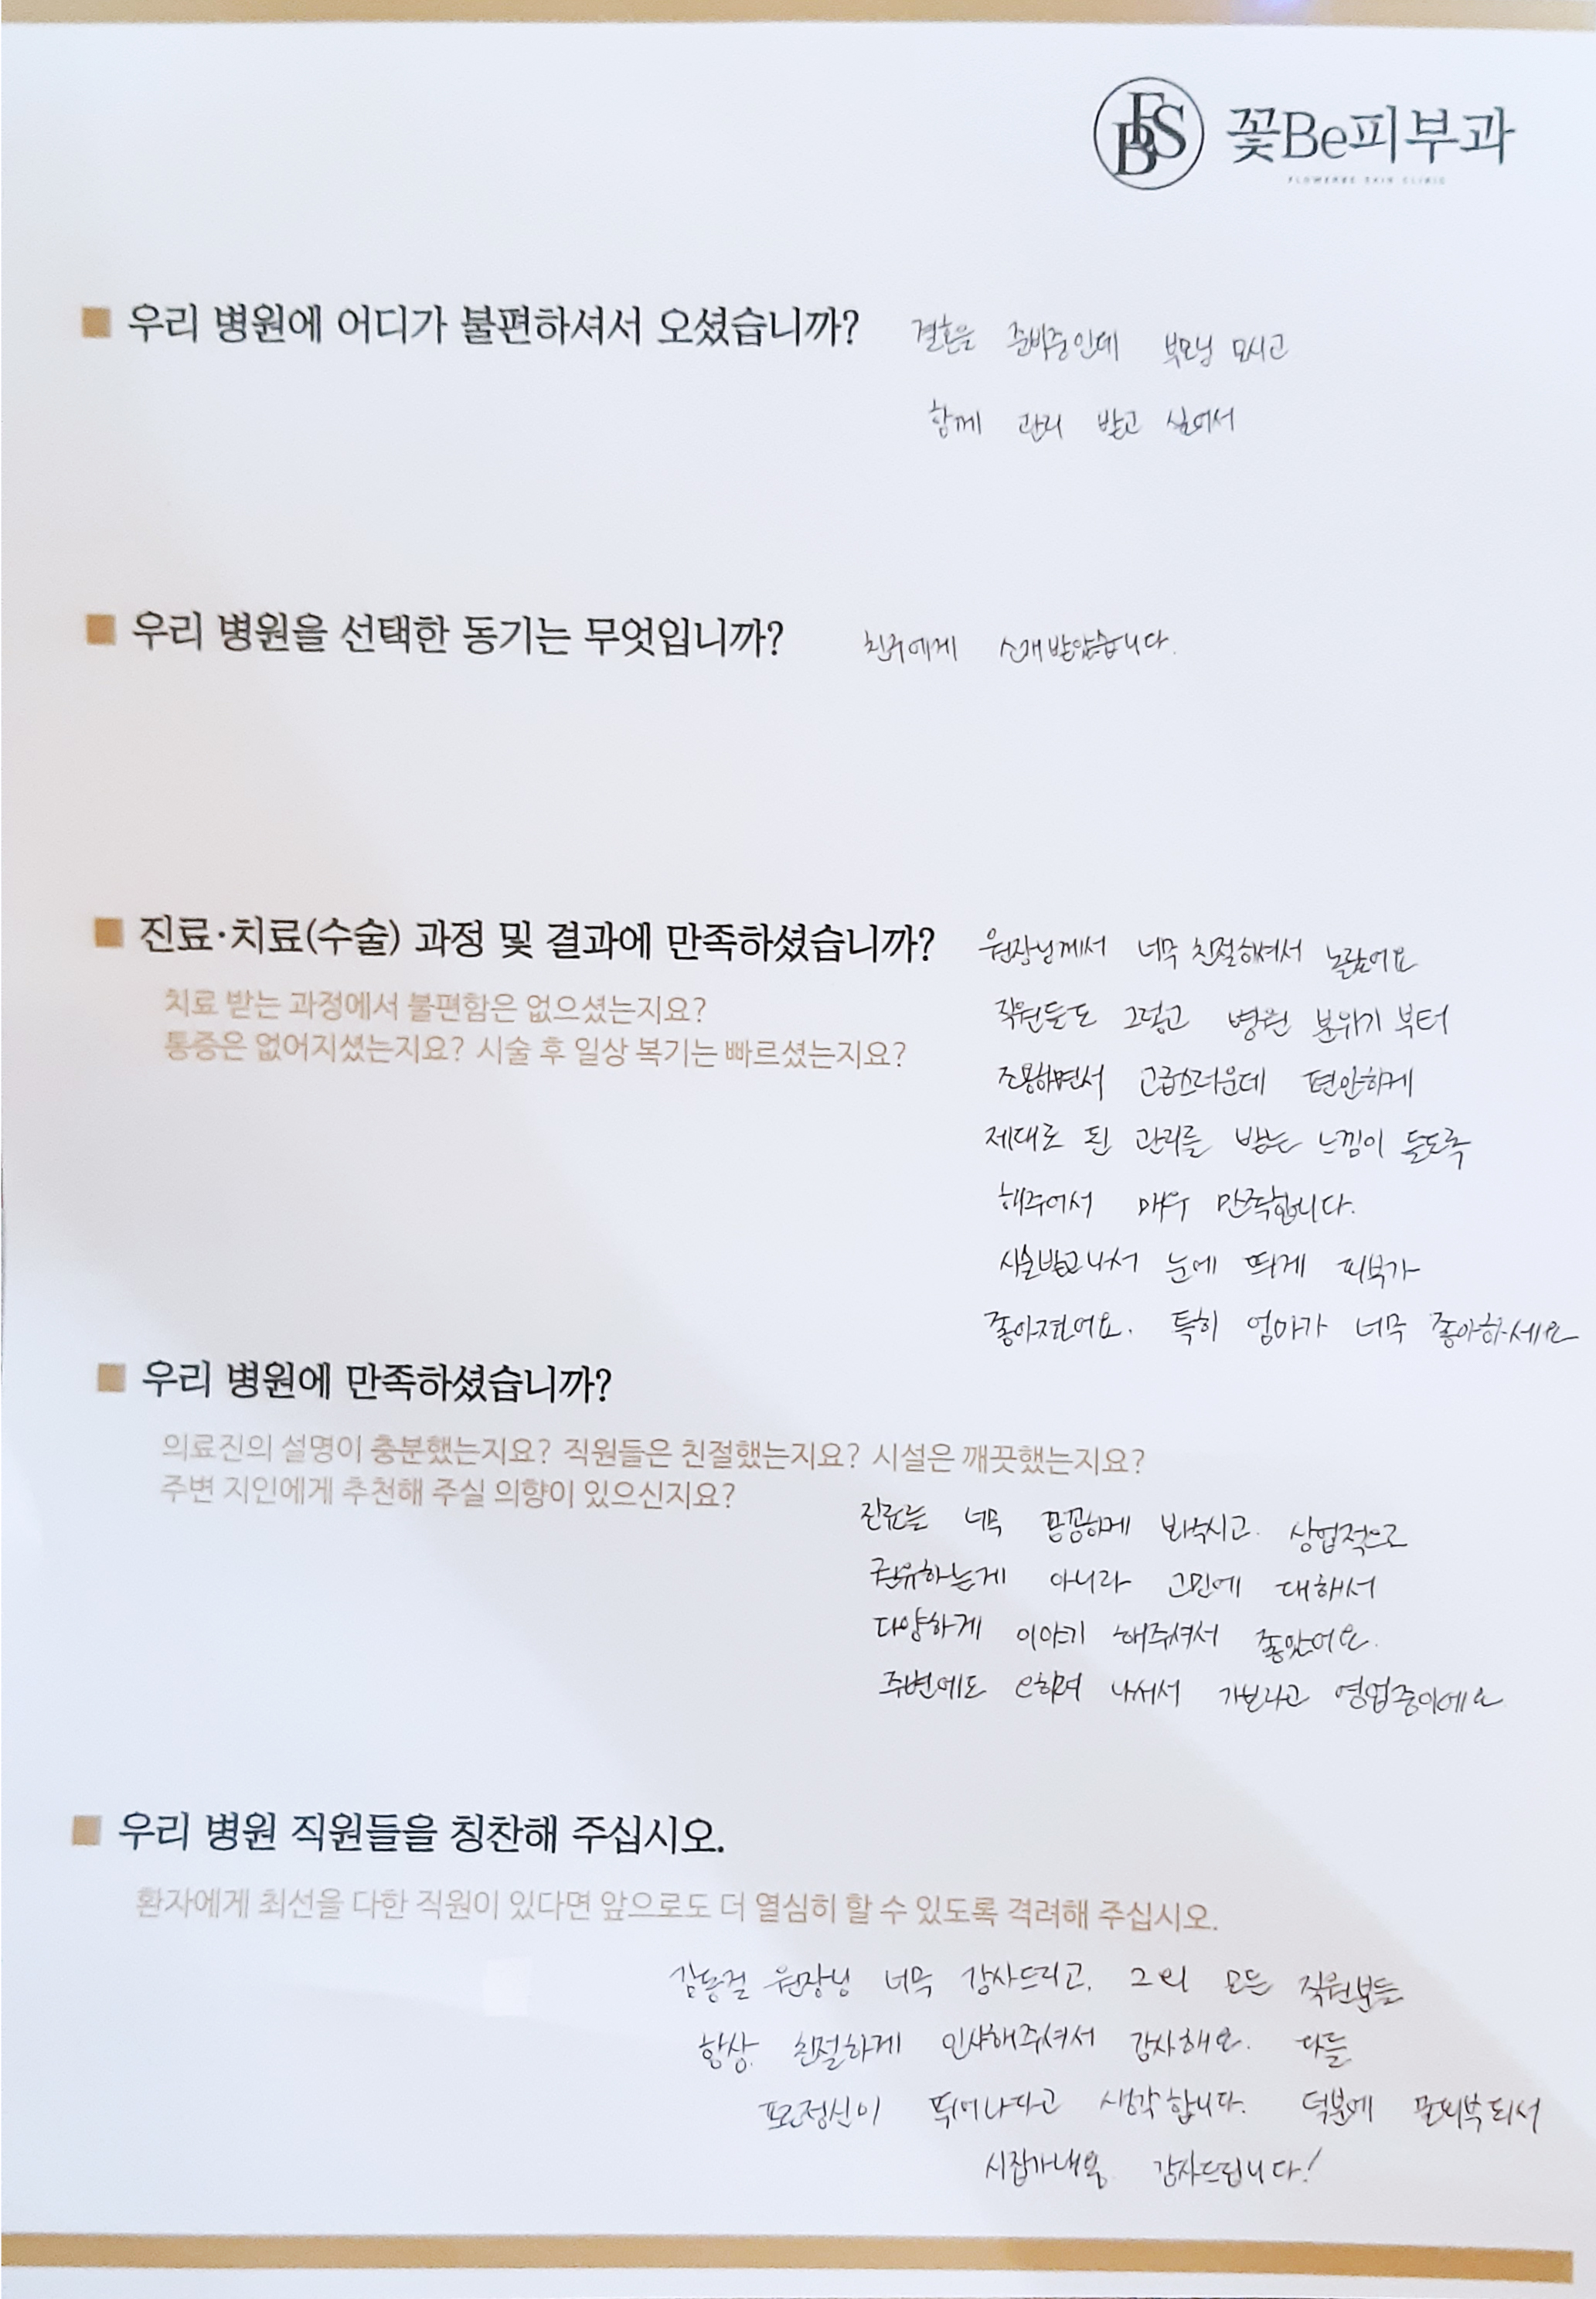 FBS 꽃Be피부과
FLOWERBE SKIN CLINIC
■ 우리 병원에 어디가 불편하셔서 오셨습니까? 결혼을 준비중인데 부모님 모시고
함께 관리 받고 싶어서
■ 우리 병원을 선택한 동기는 무엇입니까? 친구에게 소개받았습니다.
■ 진료·치료(수술) 과정 및 결과에 만족하셨습니까? 원장님께서 너무 친절하셔서 놀랐어요
치료 받는 과정에서 불편함은 없으셨는지요?
통증은 없어지셨는지요? 시술 후 일상 복기는 빠르셨는지요?
직원들도 그렇고 병원 분위기 부터
조용하면서 고급스러운데 편안하게
제대로 된 관리를 받는 느낌이 들도록
해주어서 매우 만족합니다.
시술받고나서 눈에 띄게 피부가
좋아졌어요. 특히 엄마가 너무 좋아하세요
■ 우리 병원에 만족하셨습니까?
의료진의 설명이 충분했는지요? 직원들은 친절했는지요? 시설은 깨끗했는지요?
주변 지인에게 추천해 주실 의향이 있으신지요?
진료를 너무 꼼꼼하게 봐주시고. 상업적으로
권유하는게 아니라 고민에 대해서
다양하게 이야기 해주셔서 좋았어요.
주변에도 나서서 가보라고 영업중이에요
■ 우리 병원 직원들을 칭찬해 주십시오.
환자에게 최선을 다한 직원이 있다면 앞으로도 더 열심히 할 수 있도록 격려해 주십시오.
원장님 너무 감사드리고, 그외 모든 직원분들
항상 친절하게 인사해주셔서 감사해요. 다들
프로정신이 뛰어나다고 생각합니다. 덕분에 꿀피부되서
시집가네용 감사드립니다!